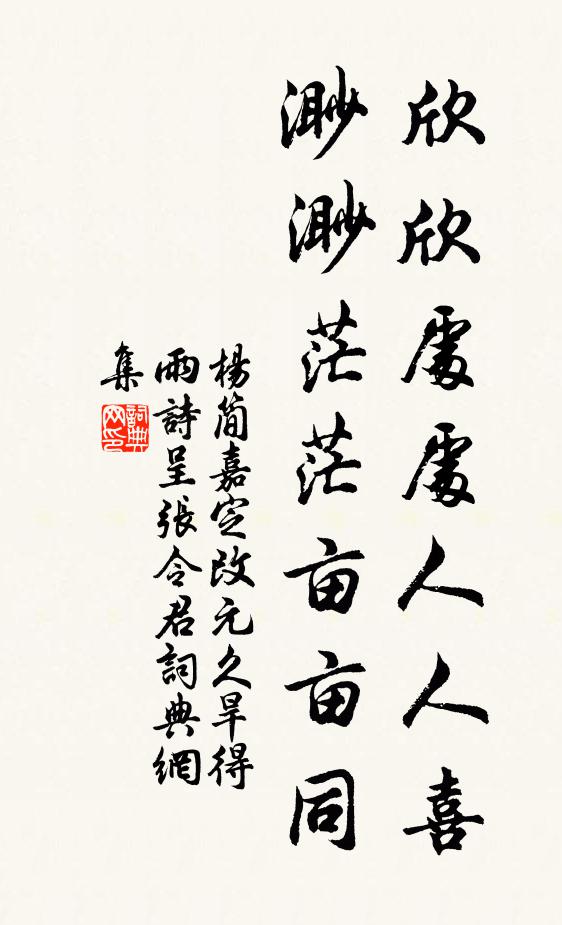 欣欣處處人人喜
渺渺茫茫亩亩同
楊簡嘉定改元久旱得
雨詩呈張令君詞典網
集
詞典
网印